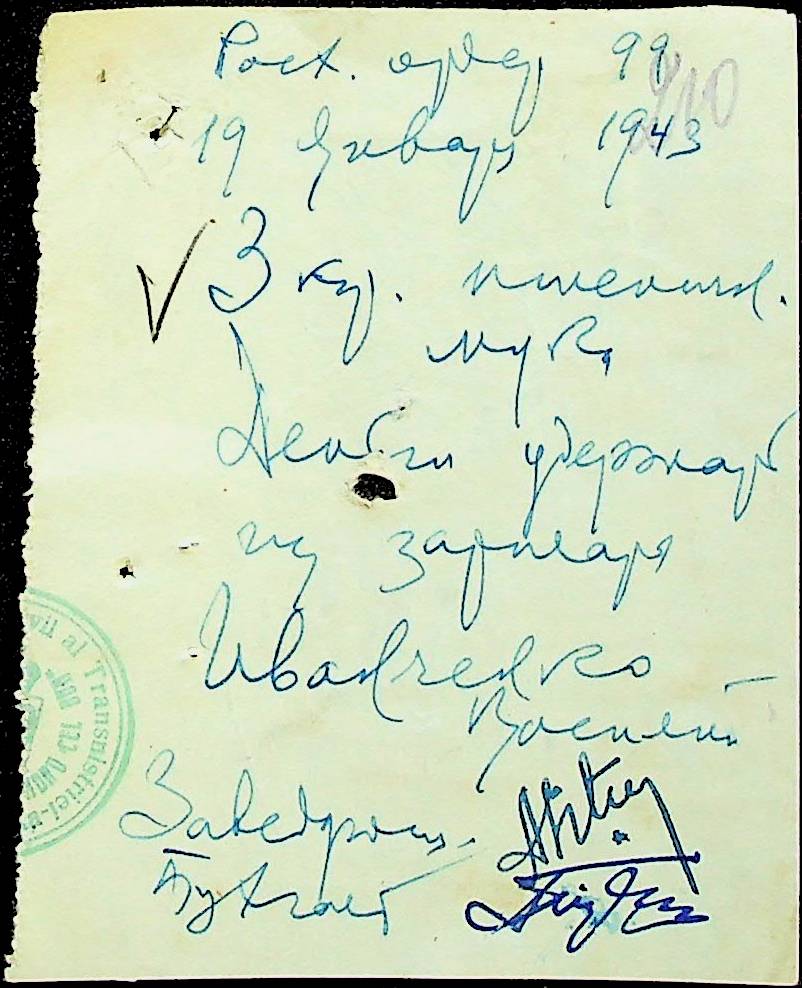 Расх. ордер 99
210
19 Января 1943
3 кгр. пшеничн.
муки
Деньги удержать
из зарплаты
Иванченко
Василий
Заведующ.
Бухгалт
vil al Transnistriei